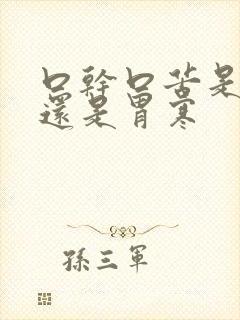 口幹口苦是
還是胃寒
孫三軍